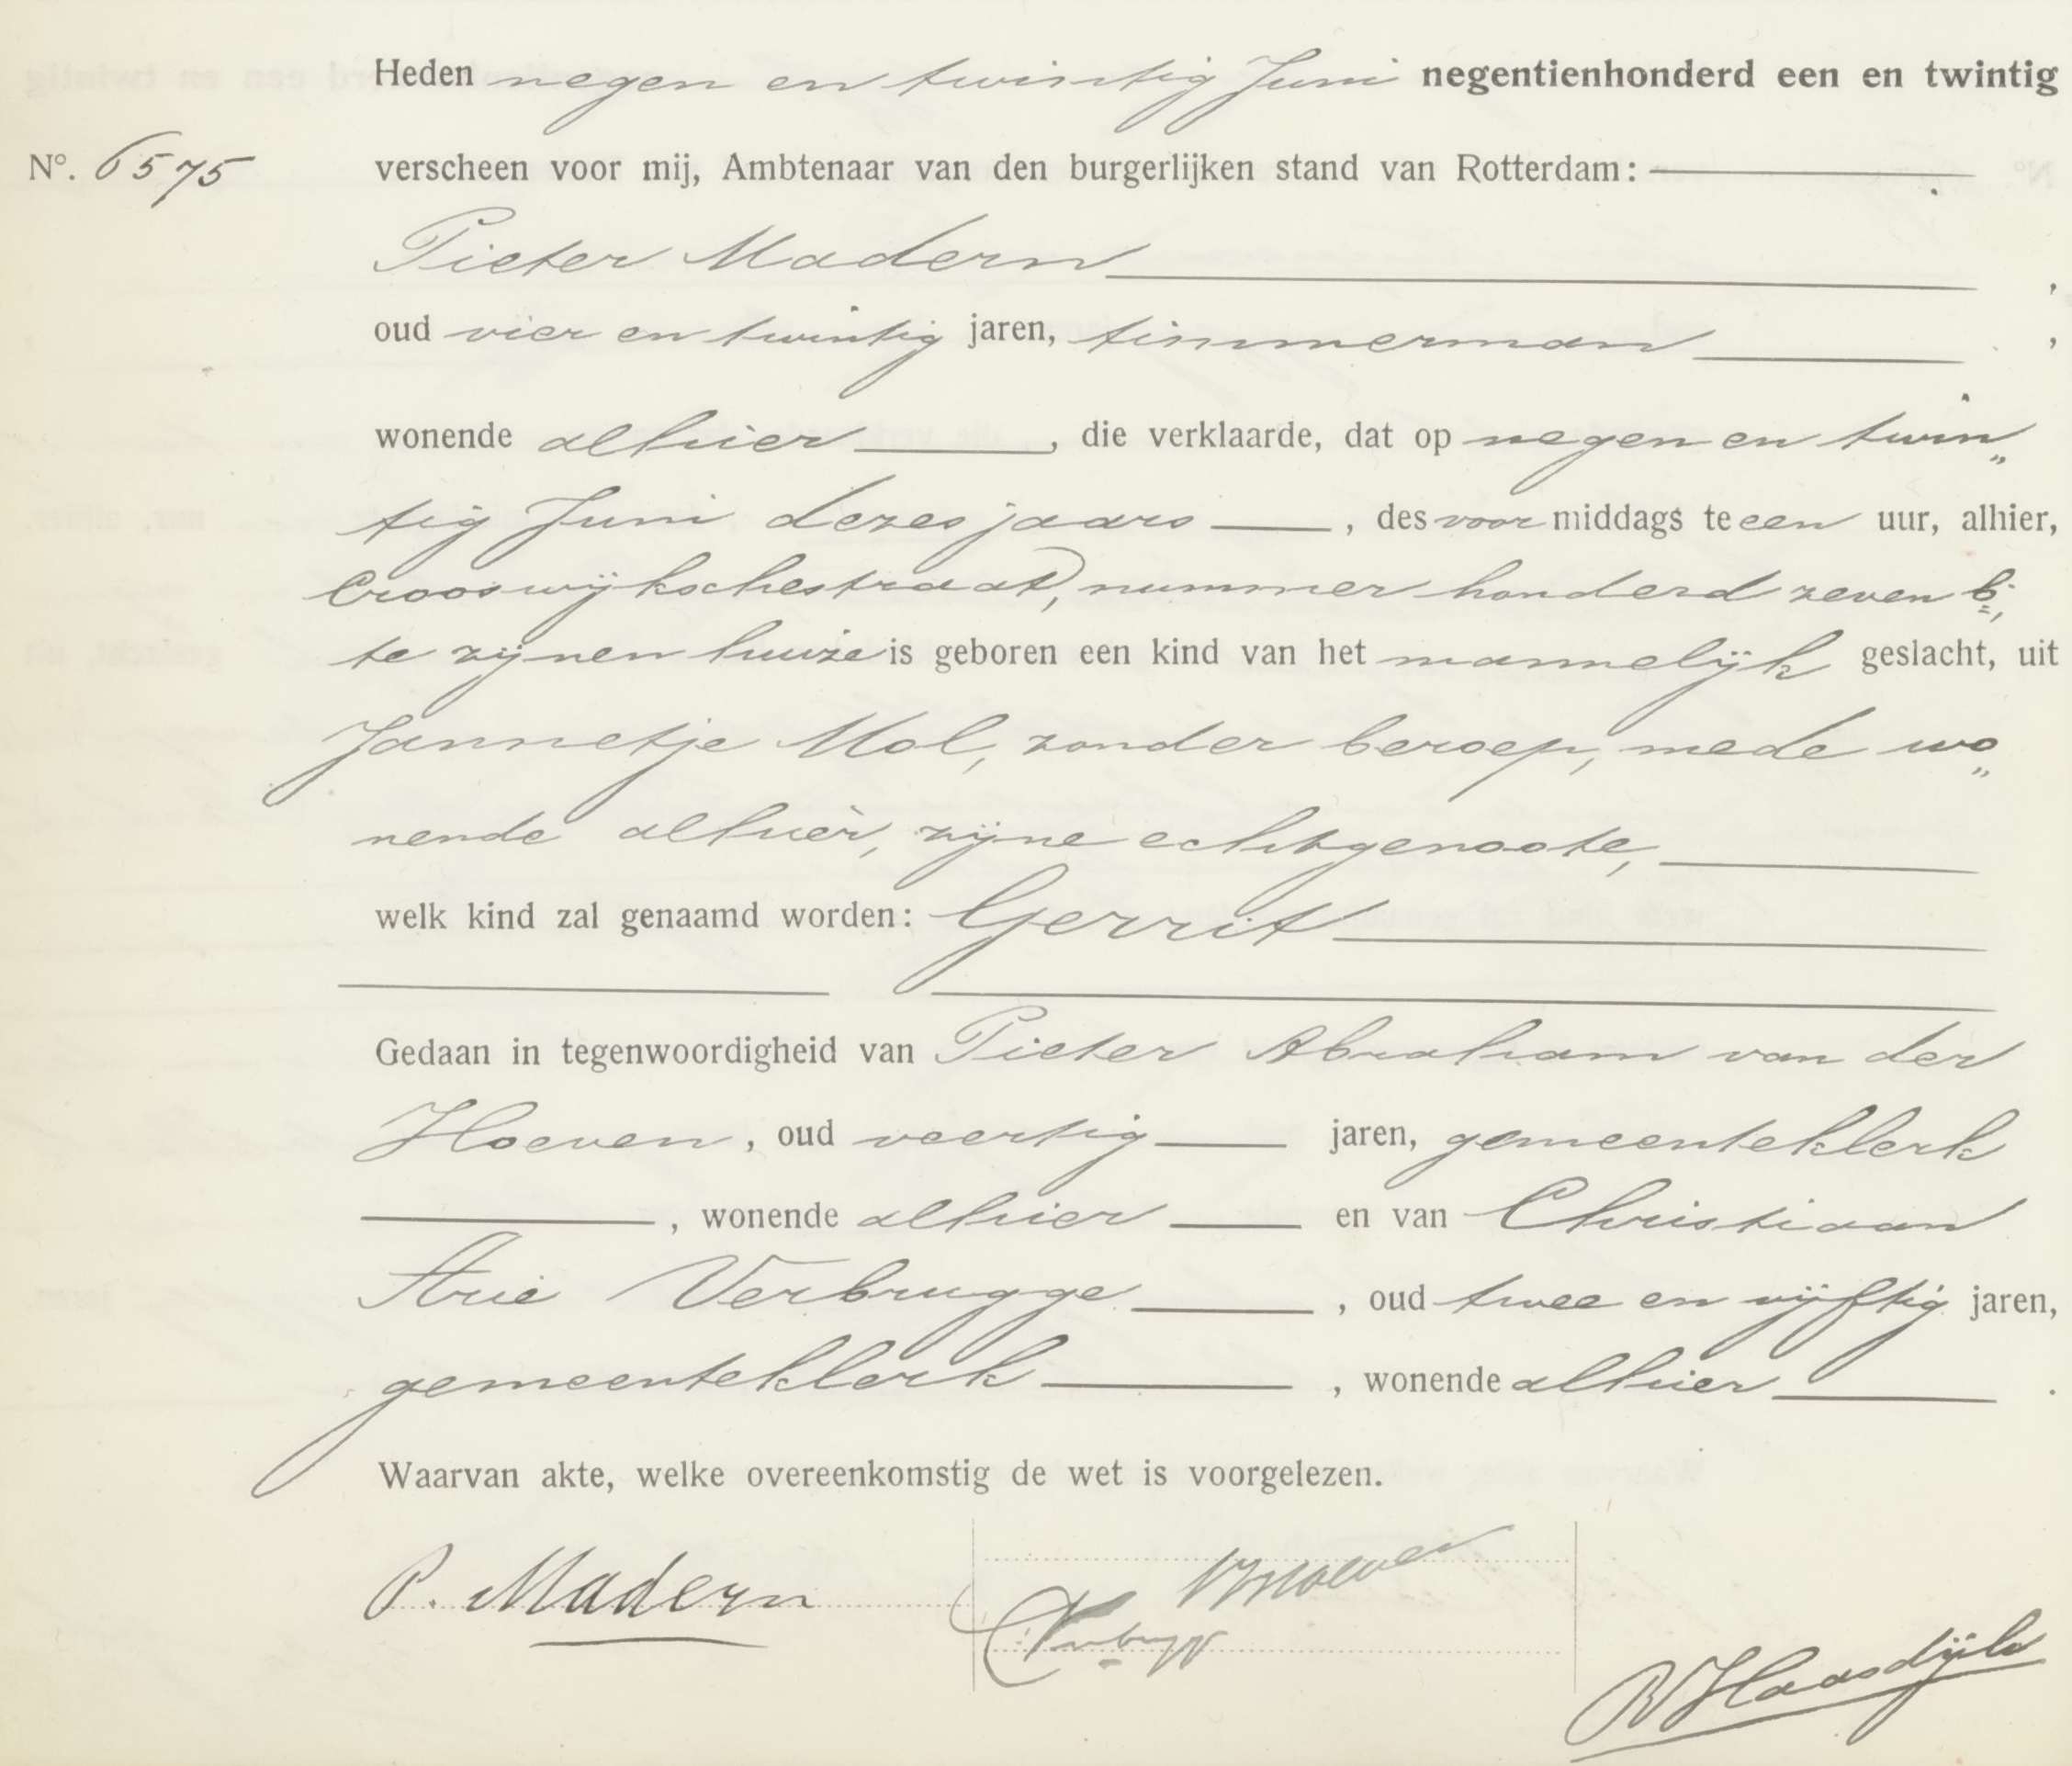 Heden negen en twintig Juni negentienhonderd een en twintig
N°. 6575 verscheen voor mij, Ambtenaar van den burgerlijken stand van Rotterdam:
Pieter Madern,
oud vier en twintig jaren, timmerman,
wonende alhier, die verklaarde, dat op negen en twin„
tig Juni dezes jaars, des voormiddags te een uur, alhier,
Crooswijkschestraat, nummer honderd zeven b,
te zijnen huize is geboren een kind van het mannelijk geslacht, uit
Jannetje Mol, zonder beroep, mede wo„
nende alhier, zijne echtgenoote,
welk kind zal genaamd worden: Gerrit
Gedaan in tegenwoordigheid van Pieter Abraham van der
Hoeven, oud veertig jaren, gemeenteklerk
, wonende alhier en van Christiaan
Arie Verbrugge, oud twee en vijftig jaren,
gemeenteklerk, wonende alhier.
Waarvan akte, welke overeenkomstig de wet is voorgelezen.
P. Madern